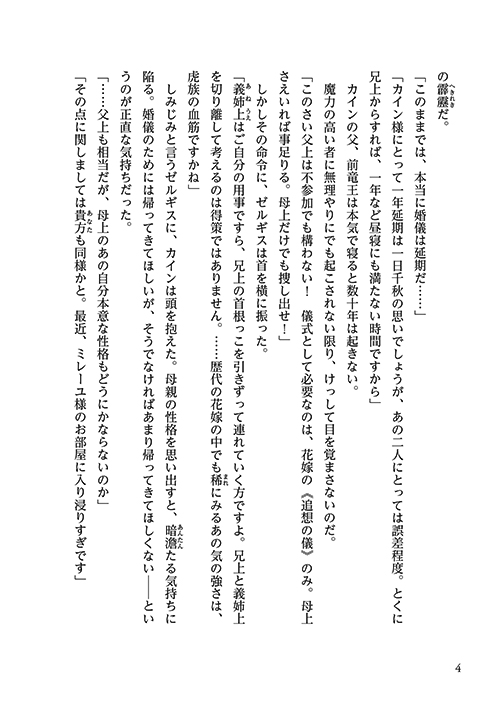 の霹靂だ。
「このままでは、本当に婚儀は延期だ……」
「カイン様にとって一年延期は一日千秋の思いでしょうが、あの二人にとっては誤差程度。とくに
兄上からすれば、一年など昼寝にも満たない時間ですから」
カインの父、前竜王は本気で寝ると数十年は起きない。
魔力の高い者に無理やりにでも起こされない限り、けっして目を覚まさないのだ。
「このさい父上は不参加でも構わない！　儀式として必要なのは、花嫁の《追想の儀》のみ。母上
さえいれば事足りる。母上だけでも捜し出せ！」
しかしその命令に、ゼルギスは首を横に振った。
「義姉上はご自分の用事ですら、兄上の首根っこを引きずって連れていく方ですよ。兄上と義姉上
を切り離して考えるのは得策ではありません。……歴代の花嫁の中でも稀にみるあの気の強さは、
虎族の血筋ですかね」
しみじみと言うゼルギスに、カインは頭を抱えた。母親の性格を思い出すと、暗澹たる気持ちに
陥る。婚儀のためには帰ってきてほしいが、そうでなければあまり帰ってきてほしくない――とい
うのが正直な気持ちだった。
「……父上も相当だが、母上のあの自分本意な性格もどうにかならないのか」
「その点に関しましては貴方も同様かと。最近、ミレーユ様のお部屋に入り浸りすぎです」
4